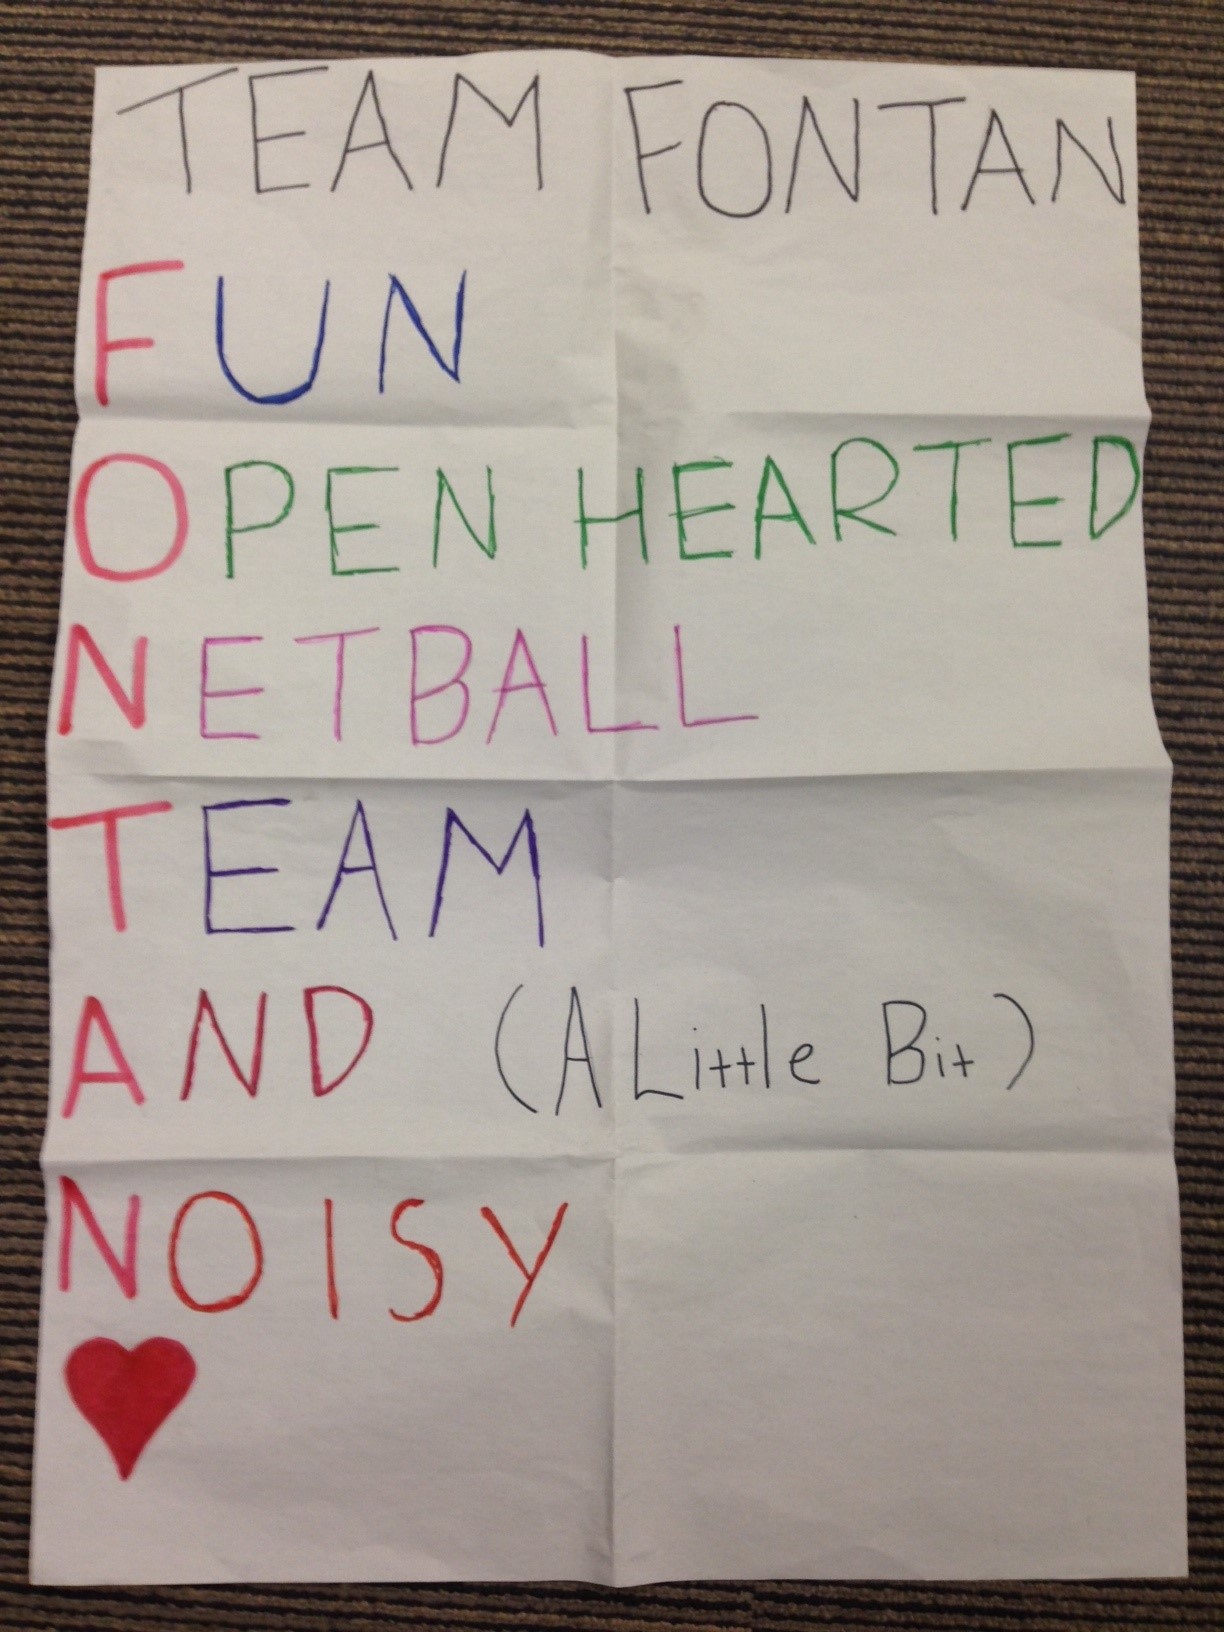 TEAM FONTAN
FUN
OPEN HEARTED
NETBALL
TEAM
AND (A Little Bit)
NOISY